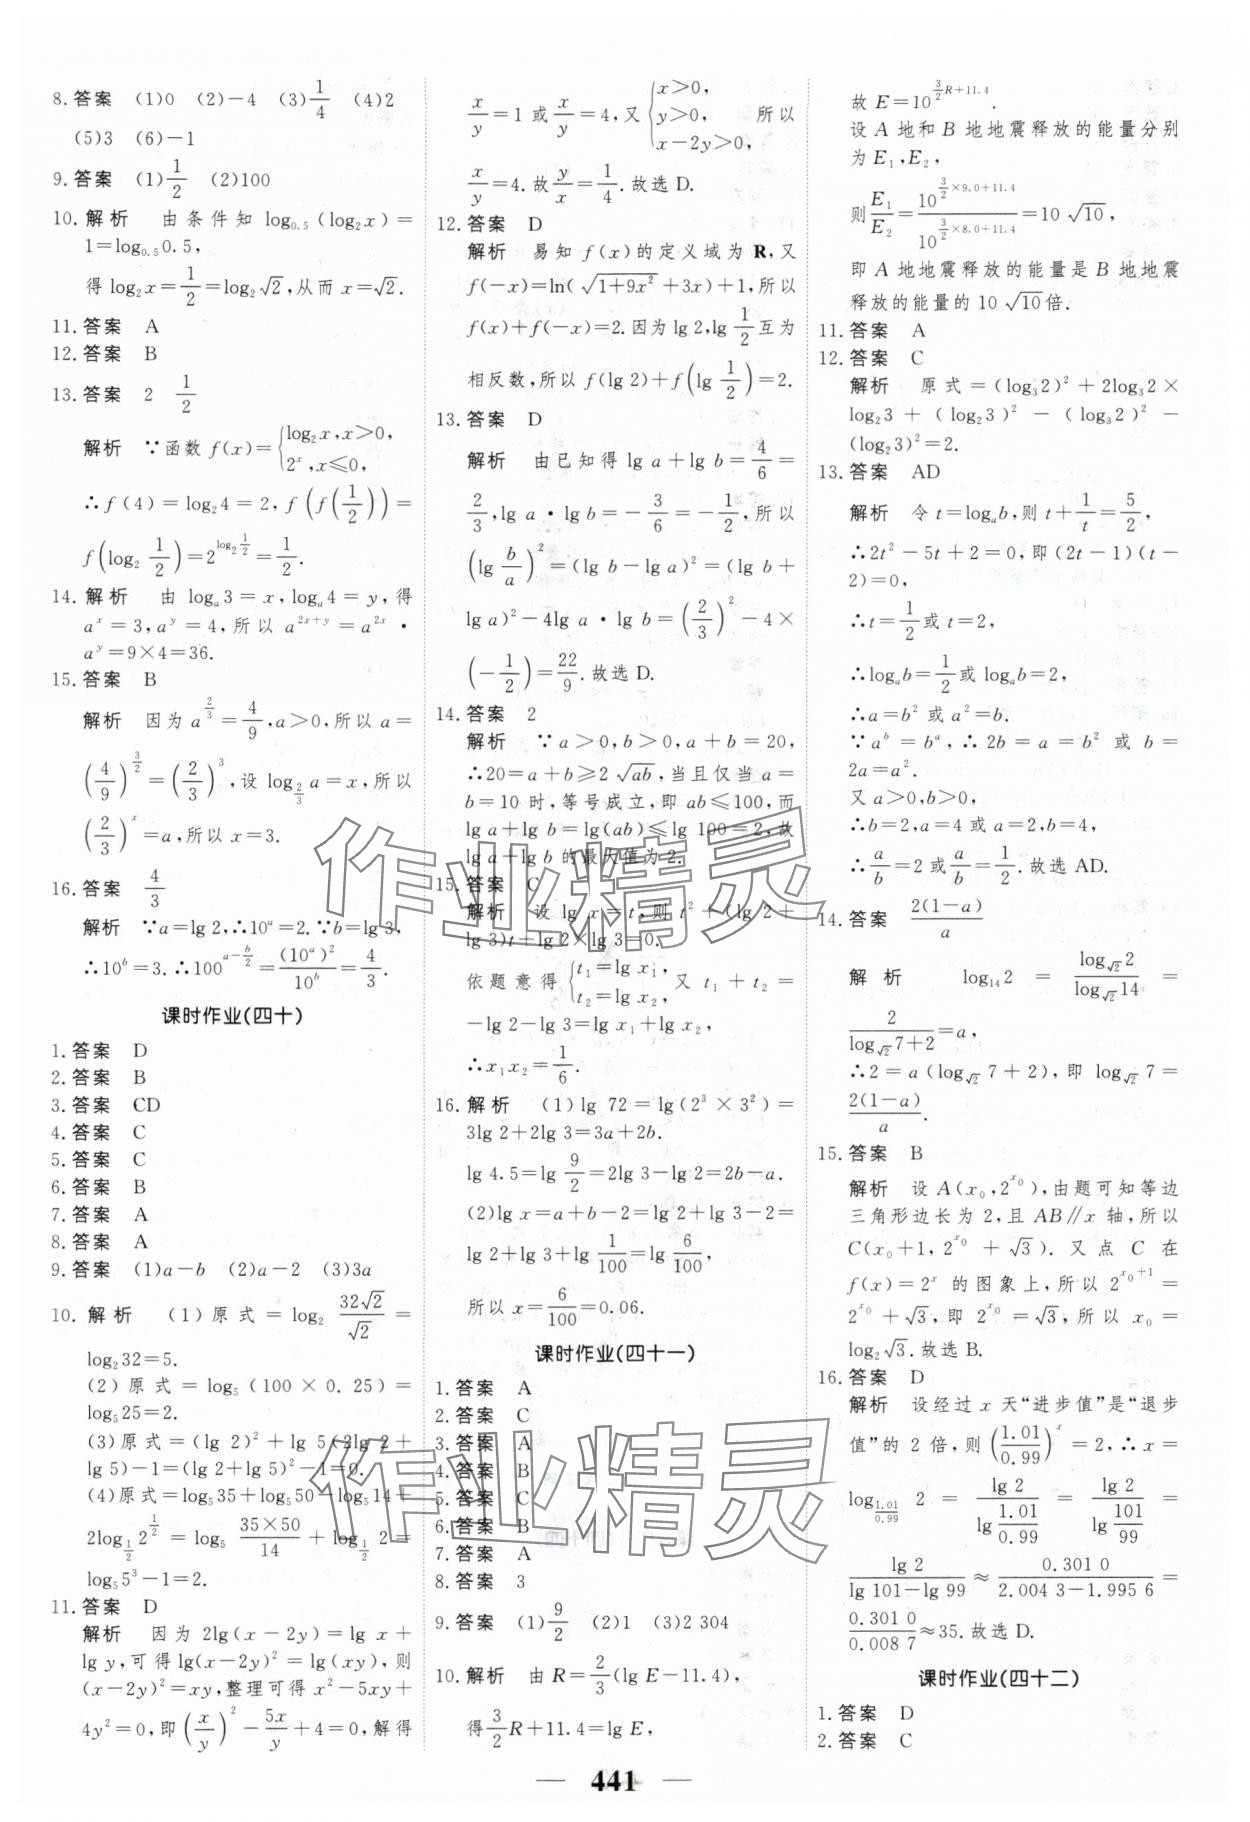 8. 答案 (1)0 (2)－4 (3)1/4 (4)2
(5)3 (6)－1
9. 答案 (1)1/2 (2)100
10. 解析 由条件知 log₀.₅(log₂x)＝
1＝log₀.₅0.5,
得 log₂x＝1/2＝log₂√2,从而 x＝√2.
11. 答案 A
12. 答案 B
13. 答案 2 1/2
解析 ∵函数 f(x)＝{log₂x,x＞0, 2^x,x≤0,
∴f(4)＝log₂4＝2, f(f(1/2))＝
f(log₂ 1/2)＝2^(log₂ 1/2)＝1/2.
14. 解析 由 logₐ3＝x, logₐ4＝y, 得
a^x＝3,a^y＝4,所以 a^(2x+y)＝a^(2x)·
a^y＝9×4＝36.
15. 答案 B
解析 因为 a^(2/3)＝4/9,a＞0,所以 a＝
(4/9)^(3/2)＝(2/3)^3,设 log_(2/3) a＝x,所以
(2/3)^x＝a,所以 x＝3.
16. 答案 4/3
解析 ∵a＝lg 2,∴10^a＝2.∵b＝lg 3,
∴10^b＝3.∴100^(a－b/2)＝(10^a)^2/10^b＝4/3.
课时作业(四十)
1. 答案 D
2. 答案 B
3. 答案 CD
4. 答案 C
5. 答案 C
6. 答案 B
7. 答案 A
8. 答案 A
9. 答案 (1)a－b (2)a－2 (3)3a
10. 解析 (1)原式＝log₂ 32√2/√2＝
log₂32＝5.
(2)原式＝log₅(100×0.25)＝
log₅25＝2.
(3)原式＝(lg 2)²＋lg 5(2lg 2＋
lg 5)－1＝(lg 2＋lg 5)²－1＝0.
(4)原式＝log₅35＋log₅50－log₅14＋
2log_(1/2) 2^(1/2)＝log₅ 35×50/14＋log_(1/2) 2＝
log₅5³－1＝2.
11. 答案 D
解析 因为 2lg(x－2y)＝lg x＋
lg y,可得 lg(x－2y)²＝lg(xy),则
(x－2y)²＝xy,整理可得 x²－5xy＋
4y²＝0,即(x/y)²－5x/y＋4＝0,解得
x/y＝1 或 x/y＝4,又{x＞0, y＞0, x－2y＞0, 所以
x/y＝4.故 y/x＝1/4.故选 D.
12. 答案 D
解析 易知 f(x)的定义域为 R,又
f(－x)＝ln(√(1＋9x²)＋3x)＋1,所以
f(x)＋f(－x)＝2.因为 lg 2,lg 1/2 互为
相反数,所以 f(lg 2)＋f(lg 1/2)＝2.
13. 答案 D
解析 由已知得 lg a＋lg b＝4/6＝
2/3,lg a·lg b＝－3/6＝－1/2,所以
(lg b/a)²＝(lg b－lg a)²＝(lg b＋
lg a)²－4lg a·lg b＝(2/3)²－4×
(－1/2)＝22/9.故选 D.
14. 答案 2
解析 ∵a＞0,b＞0,a＋b＝20,
∴20＝a＋b≥2√ab,当且仅当 a＝
b＝10 时,等号成立,即 ab≤100,而
lg a＋lg b＝lg(ab)≤lg 100＝2,故
lg a＋lg b 的最大值为 2.
15. 答案 C
解析 设 lg x＝t,则 t²＋(lg 2＋
lg 3)t＋lg 2×lg 3＝0.
依题意得{t₁＝lg x₁, t₂＝lg x₂, 又 t₁＋t₂＝
－lg 2－lg 3＝lg x₁＋lg x₂,
∴x₁x₂＝1/6.
16. 解析 (1)lg 72＝lg(2³×3²)＝
3lg 2＋2lg 3＝3a＋2b.
lg 4.5＝lg 9/2＝2lg 3－lg 2＝2b－a.
(2)lg x＝a＋b－2＝lg 2＋lg 3－2＝
lg 2＋lg 3＋lg 1/100＝lg 6/100,
所以 x＝6/100＝0.06.
课时作业(四十一)
1. 答案 A
2. 答案 C
3. 答案 A
4. 答案 B
5. 答案 C
6. 答案 B
7. 答案 A
8. 答案 3
9. 答案 (1)9/2 (2)1 (3)2 304
10. 解析 由 R＝2/3(lg E－11.4),
得 3/2 R＋11.4＝lg E,
故 E＝10^(3/2 R＋11.4).
设 A 地和 B 地地震释放的能量分别
为 E₁,E₂,
则 E₁/E₂＝10^(3/2×9.0＋11.4)/10^(3/2×8.0＋11.4)＝10√10,
即 A 地地震释放的能量是 B 地地震
释放的能量的 10√10倍.
11. 答案 A
12. 答案 C
解析 原式＝(log₃2)²＋2log₃2×
log₂3＋(log₂3)²－(log₃2)²－
(log₂3)²＝2.
13. 答案 AD
解析 令 t＝logₐb,则 t＋1/t＝5/2,
∴2t²－5t＋2＝0,即(2t－1)(t－
2)＝0,
∴t＝1/2 或 t＝2,
∴logₐb＝1/2 或 logₐb＝2,
∴a＝b² 或 a²＝b.
∵a^b＝b^a,∴2b＝a＝b² 或 b＝
2a＝a².
又 a＞0,b＞0,
∴b＝2,a＝4 或 a＝2,b＝4,
∴a/b＝2 或 a/b＝1/2.故选 AD.
14. 答案 2(1－a)/a
解析 log₁₄2＝log_√2 2/log_√2 14＝
2/(log_√2 7＋2)＝a,
∴2＝a(log_√2 7＋2),即 log_√2 7＝
2(1－a)/a.
15. 答案 B
解析 设 A(x₀,2^x₀),由题可知等边
三角形边长为 2,且 AB∥x 轴,所以
C(x₀＋1,2^x₀＋√3).又点 C 在
f(x)＝2^x 的图象上,所以 2^(x₀＋1)＝
2^x₀＋√3,即 2^x₀＝√3,所以 x₀＝
log₂√3.故选 B.
16. 答案 D
解析 设经过 x 天“进步值”是“退步
值”的 2 倍,则(1.01/0.99)^x＝2,∴x＝
log_(1.01/0.99) 2＝lg 2/lg(1.01/0.99)＝lg 2/lg(101/99)＝
lg 2/(lg 101－lg 99)≈0.301 0/(2.004 3－1.995 6)＝
0.301 0/0.008 7≈35.故选 D.
课时作业(四十二)
1. 答案 D
2. 答案 C
— 441 —
作业精灵
作业精灵